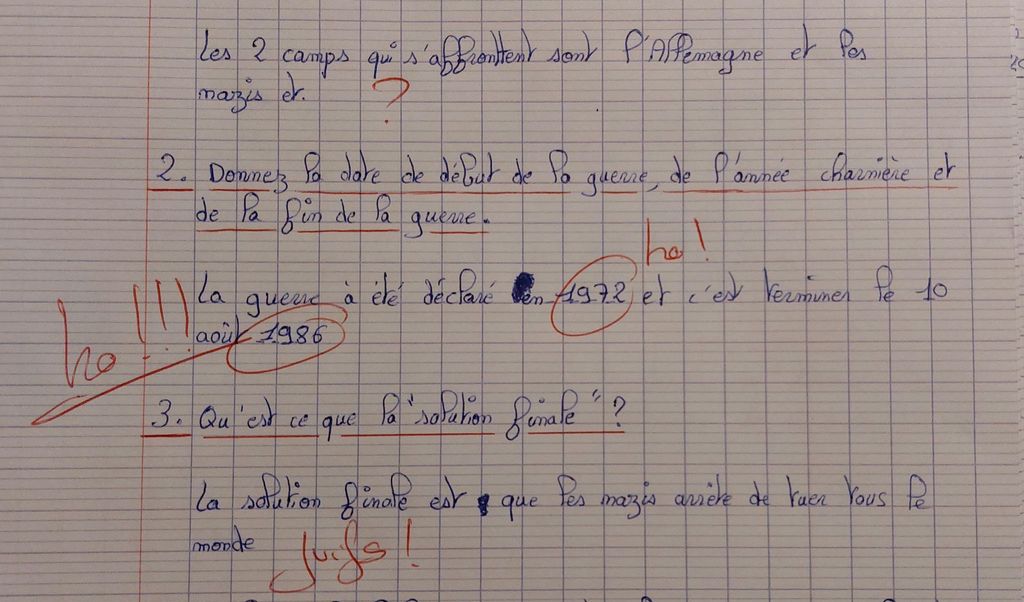 Les 2 camps qui s'affronttent sont l'Allemagne et les
nazis et.
?
2. Donnez la date de début de la guerre, de l'année charnière et
de la fin de la guerre.
ho !
La guerre à été déclaré en 1972 et c'est terminer le 10
ho !!!
août 1986
3. Qu'est ce que la "solution finale" ?
La solution finale est que les nazis arrête de tuer tous le
monde
Juifs !